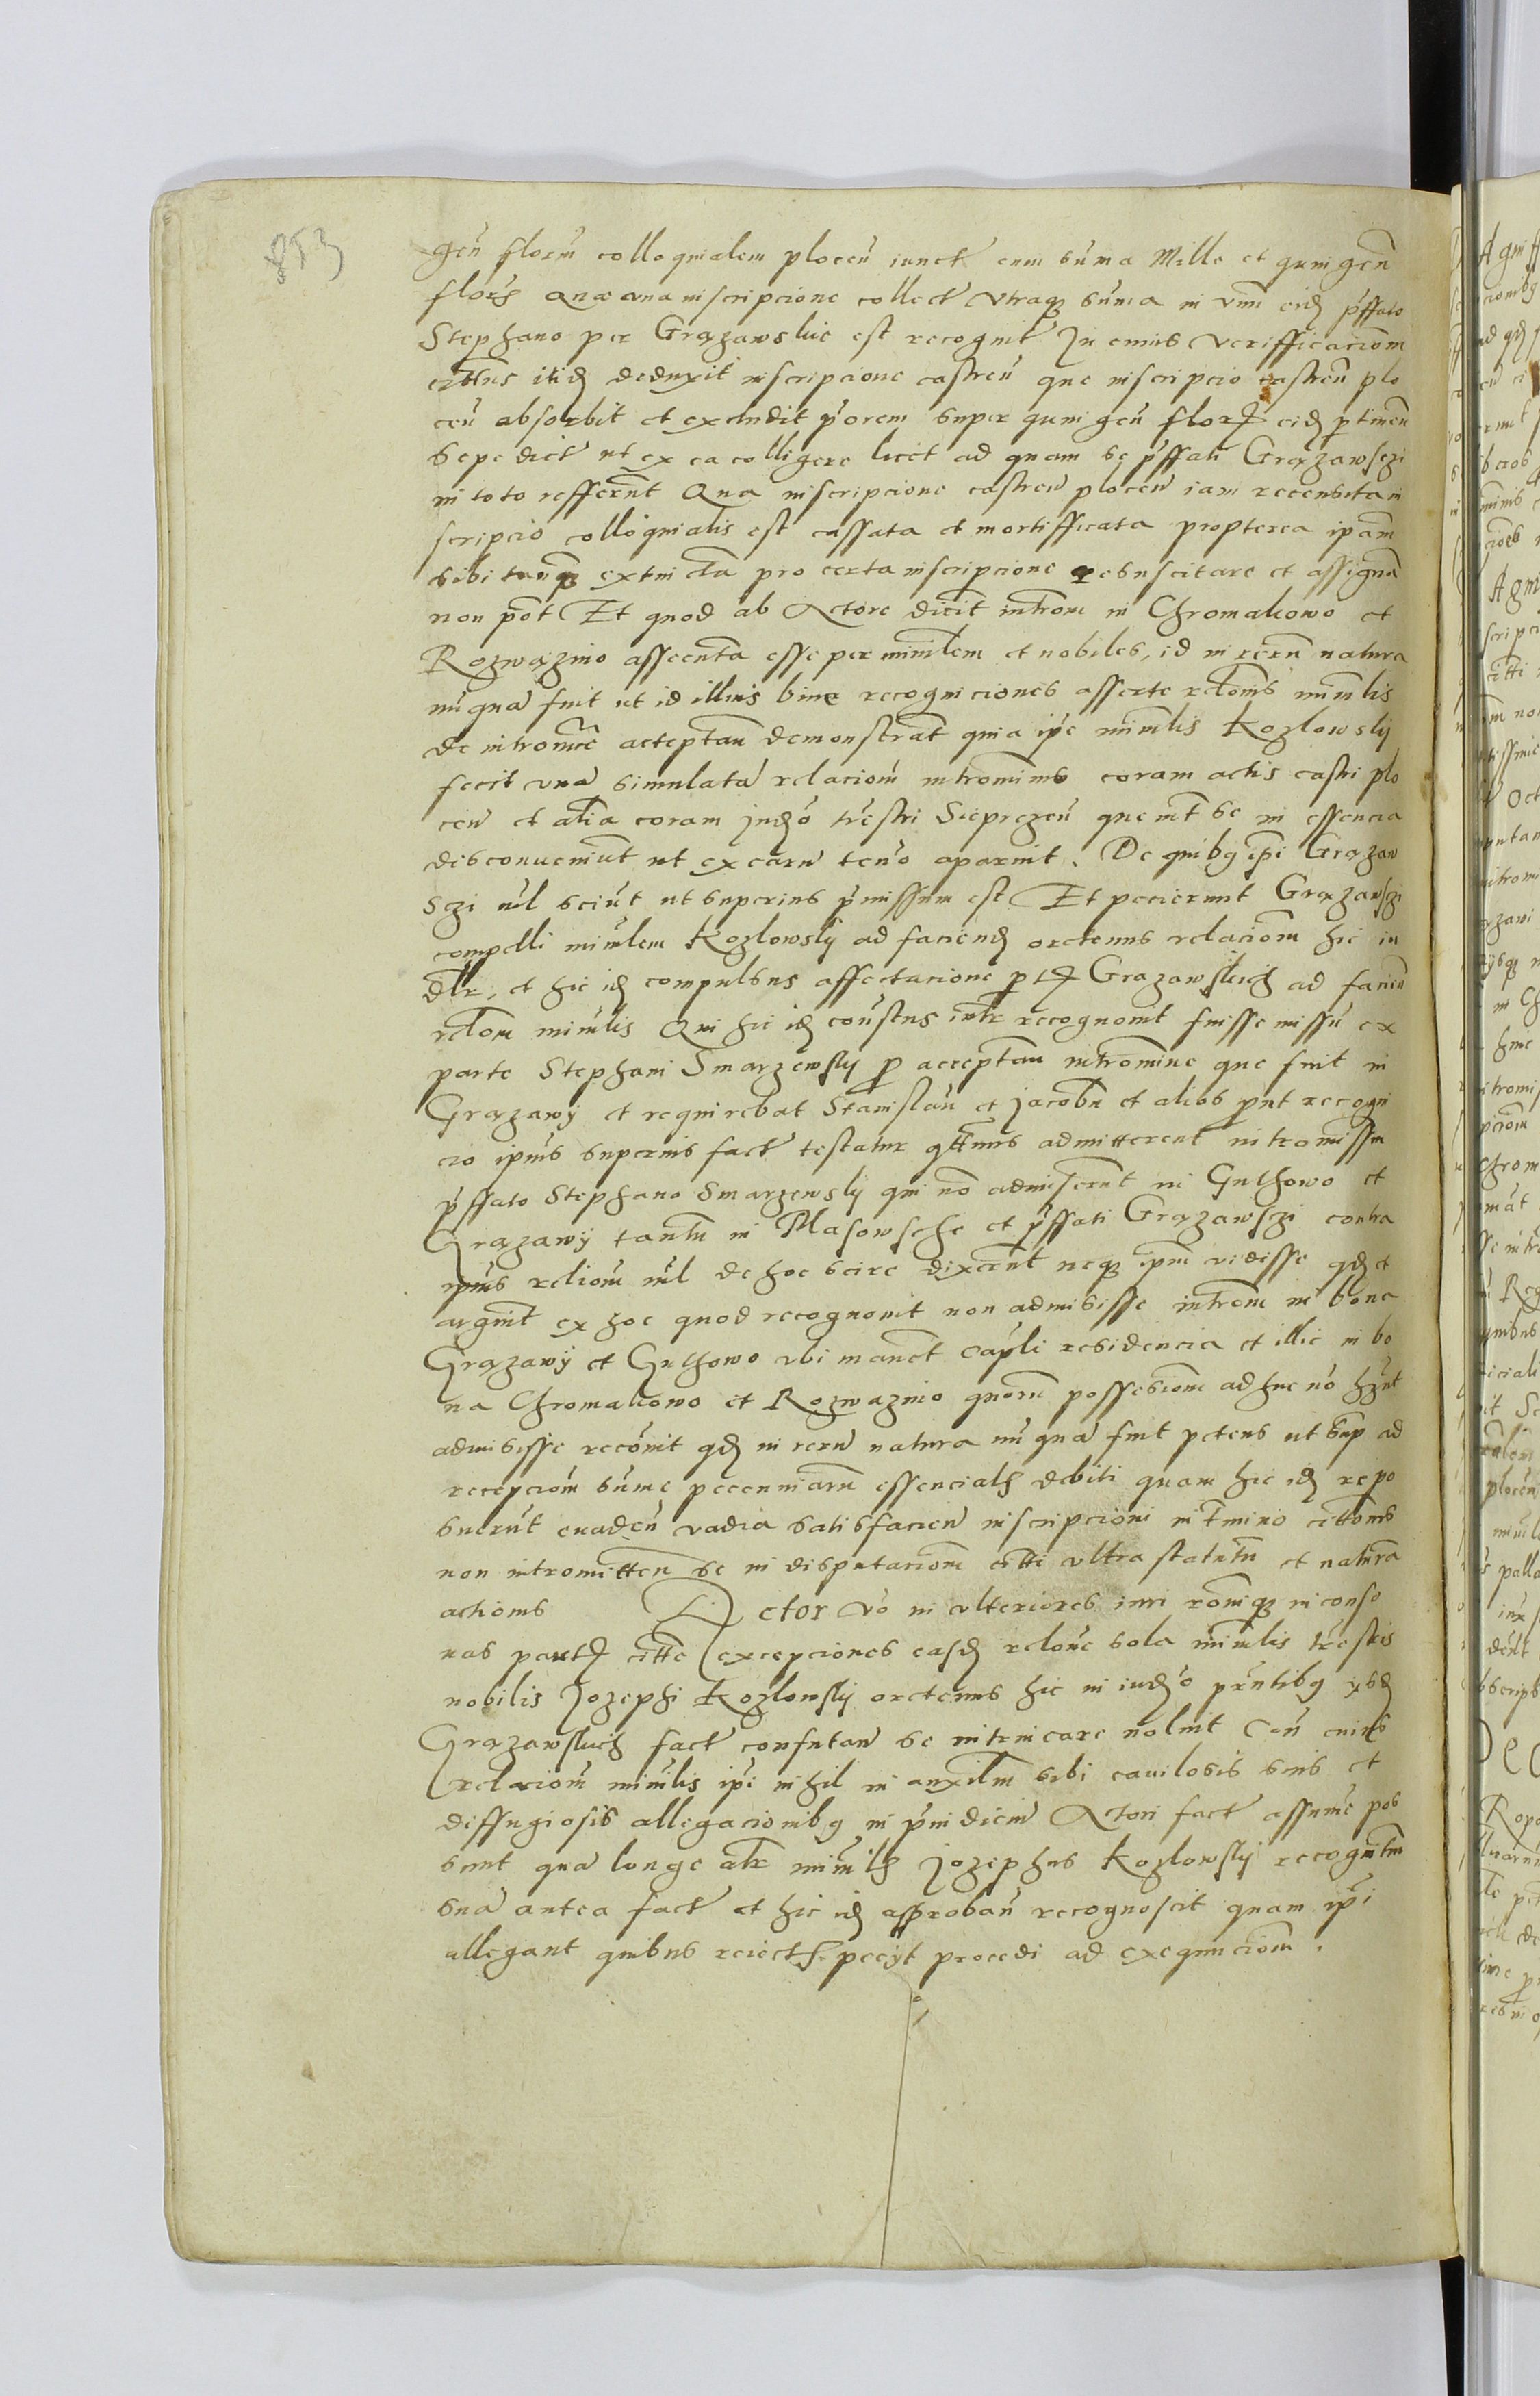 853
gen̄ florn̄ colloquialem plocen̄ iunct cum sum̄a Mille et quingen̄
floris Qua una inscripcione collect utraque sum̄a in unū eid p̄ffato
Stephano per Grązawskie est recognit In cuius verifficaciom
cittus itid deduxit inscripcione castren̄ que inscripcio castren̄ plo
cen̄ absorbit et excludit p̄orem super quingen̄ flor eid ptinen̄
sepe dict ut ex ea colligere licet ad quam se p̄ffati Grązawsczi
in toto refferūt Qua inscripcione castren̄ plocen̄ iam recensita in
scripcio colloquialis est cassata et mortifficata propterea ipam
sibi tanq extincta pro certa inscripcione resuscitare et assignā
non pōt Et quod ab Actore dicit introm in Chromakowo et
Rozwazino assecuta esse per minīlem et nobiles, id in rerū natura
nūqua fuit ut id illius bine recogniciones asserte relōnis minīlis
de intromīe acceptan̄ demonstrāt quia ip̄e minīlis Kozlowsky
fecit una simulatā relaciom̄ intromīnis coram actis castri plo
cen̄ et alia coram Judō trēstri Sieprczen̄ que int se in essencia
disconueniūt ut ex earū tenō aparuit. De quibz ip̄i Grązaw
sczi nil sciūt ut superius p̄missum est Et pecierunt Grązawsczi
compelli minīlem Kozlowsky ad faciend orctenus relaciom hic in
dtr, et hic id compulsus affectacione pt Grązawskich ad facien̄
relom minīlis Qui hic id coūstus intr recognouit fuisse missū ex
parte Stephani Smarzewsky p acceptan̄ intromīne que fuit in
Grązawy et requirebat Stanislaū et Jacobū et alios prūt recogni
cio ipius superius fact testatur qttinus admitterent intromissū
p̄ffato Stephano Smarzewsky qui nō admiserūt in Guthowo et
Grązawy tantū in Masowsche et p̄ffati Grązawsczi contra
ipius reliom nil de hoc scire dixerūt neq ipm vidisse qd et
arguūt ex hoc quod recognouit non admisisse introm in bona
Grązawy et Guthowo ubi manēt capli residencia et illic in bo
na Chromakowo et Rozwazino quorū possesiom adhuc nō hn̄t
admisisse recōuit qd in rerū natura nūqua fuit petens ut sup ad
recepciom̄ sum̄e peceuniarū essencials debiti quam hic id repo
suerūt euaden̄ vadia satisfacien̄ inscripcioni in tmino cittonis
non intromitten̄ se in disputaciom citti ultra statutū et naturā
actionis Actor vō in ulteriores iuri rōniq inconso
nas partis citte excepciones easd relone sola minīlis trēstis
nobilis Jozephi Kozlowsky orctenus hic in iudō prntibz ysd
Grązawskich fact confutan̄ se intricare noluit Con̄ cuius
relaciom minīlis ip̄i nihil in auxiliū sibi cauilosis suis et
diffugiosis allegacionibz in p̄iudiciū Actori fact assumē pos
sunt qua longe altr minīls Jozephus Kozlowsky recognitm
sua antea fact et hic id approban̄ recognoscit quam ip̄i
allegant quibus reiects. peciyt procedi ad exequuciom.